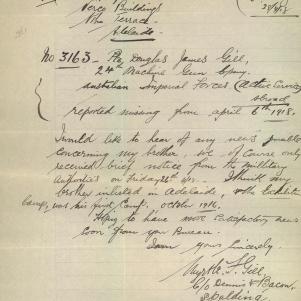 Verco Buildings
Nth Terrace,
Adelaide.
No 3163 - Pte, Douglas James Gill,
24th Machine Gun Compy.
Australian Imperial Forces (Active Service
Abroad
reported missing from April 6th 1918.
I would like to hear of any news possible
concerning my brother, we of course only
received brief notice from the military
Authorities on Friday last. I think my
brother enlisted in Adelaide, & the Exhibit
Camp, was his first Camp. October 1916.
Hoping to have more satisfactory news
soon from your Bureau.
I am yours sincerely.
Myrtle F. Gill.
C/o Dennis & Bacon.
Spalding.